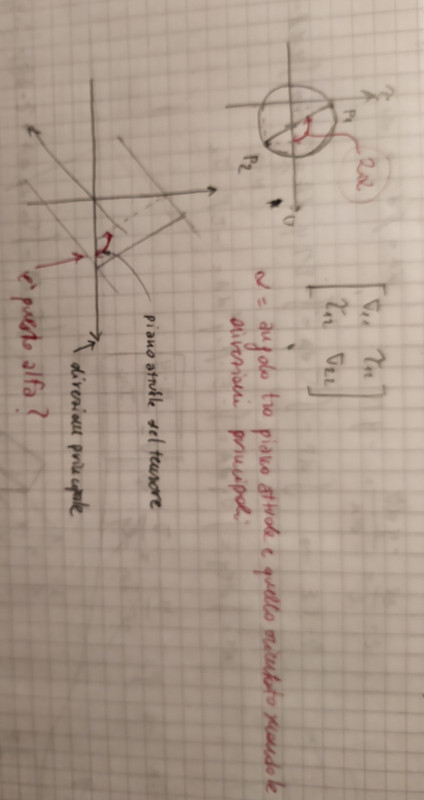 τ
P1
2α
P2
σ
[σ11 τ12
τ12 σ22]
α = angolo tra piano attuale e quello orientato secondo le
direzioni principali
piano attuale del tensore
direzioni principale
è questo alfa?